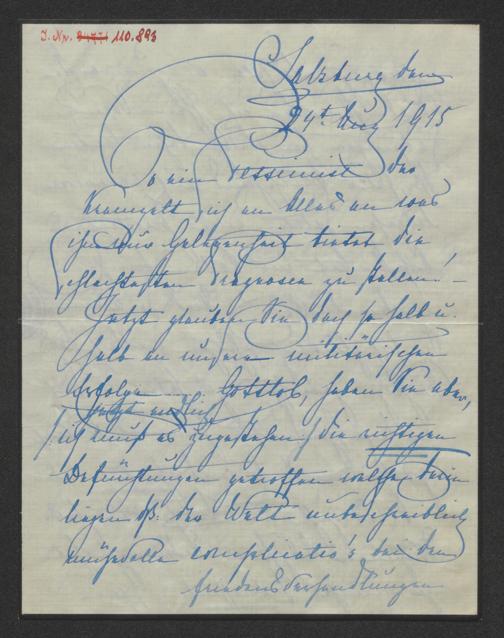 I. Nr. 110.893
Salzburg den
24t Aug 1915
So ein Pessimist das
sich an Alles an was
ihm nur Gelegenheit bietet die
schlechtesten Prognosen zu stellen! –
Jetzt glauben Sie doch so halb u.
halb an unsere militärischen
Erfolge Gottlob, haben Sie aber,
ich muß es zugestehen die richtigen
Befürchtungen getroffen welche darin
liegen dß. der Welt unbeschreiblich
mühevolle complicatio's bei den
Friedensverhandlungen